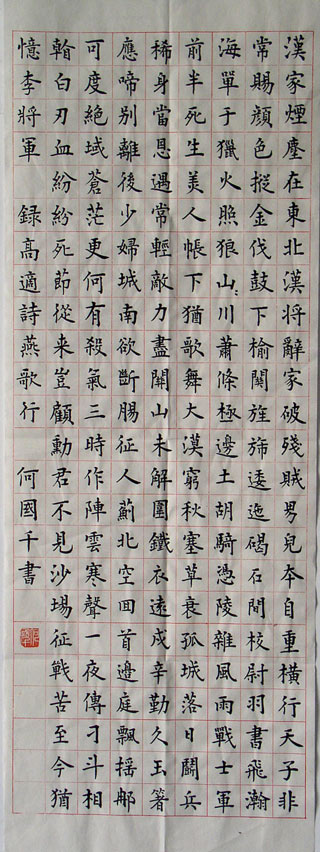 漢家煙塵在東北漢将辭家破殘賊男兒夲自重橫行天子非
常賜顏色摐金伐鼓下榆關旌旆逶迤碣石間校尉羽書飛瀚
海單于獵火照狼山:川蕭條極邊土胡騎憑陵雜風雨戰士軍
前半死生美人帳下猶歌舞大漠窮秋塞草衰孤城落日鬭兵
稀身當恩遇常輕敵力盡關山未解圍鐵衣遠戍辛勤久玉箸
應啼別離後少婦城南欲斷腸征人薊北空囬首邊庭飄搖那
可度絕域蒼茫更何有殺氣三時作陣雲寒聲一夜傳刁斗相
看白刃血紛紛死節從来豈顧勳君不見沙場征戰苦至今猶
憶李將軍 録高適詩燕歌行 何國千書